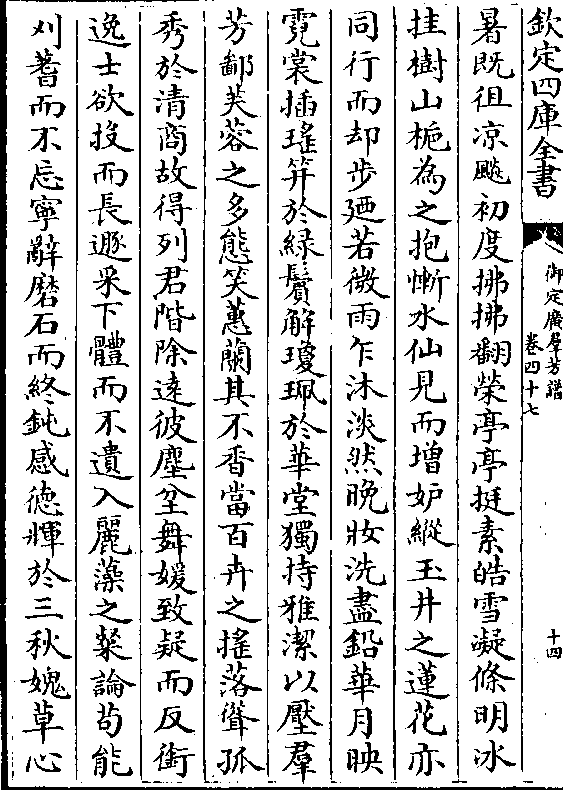 欽定四庫全書
御定廣羣芳譜
卷四十七
十四
暑既徂凉飈初度拂拂翻榮亭亭挺素皓雪凝條明冰
挂樹山梔為之抱慚水仙見而增妒縱玉井之蓮花亦
同行而却步廼若微雨乍沐淡然晚妝洗盡鉛華月映
霓裳插瑤笄於綠鬟解瓊珮於華堂獨持雅潔以壓羣
芳鄙芙蓉之多態笑蕙蘭其不香當百卉之搖落聳孤
秀於清商故得列君階除逺彼塵坌舞媛致疑而反銜
逸士欲投而長遯采下體而不遺入麗藻之粲論茍能
刈蓍而不忘寧辭磨石而終鈍感徳輝於三秋媿草心